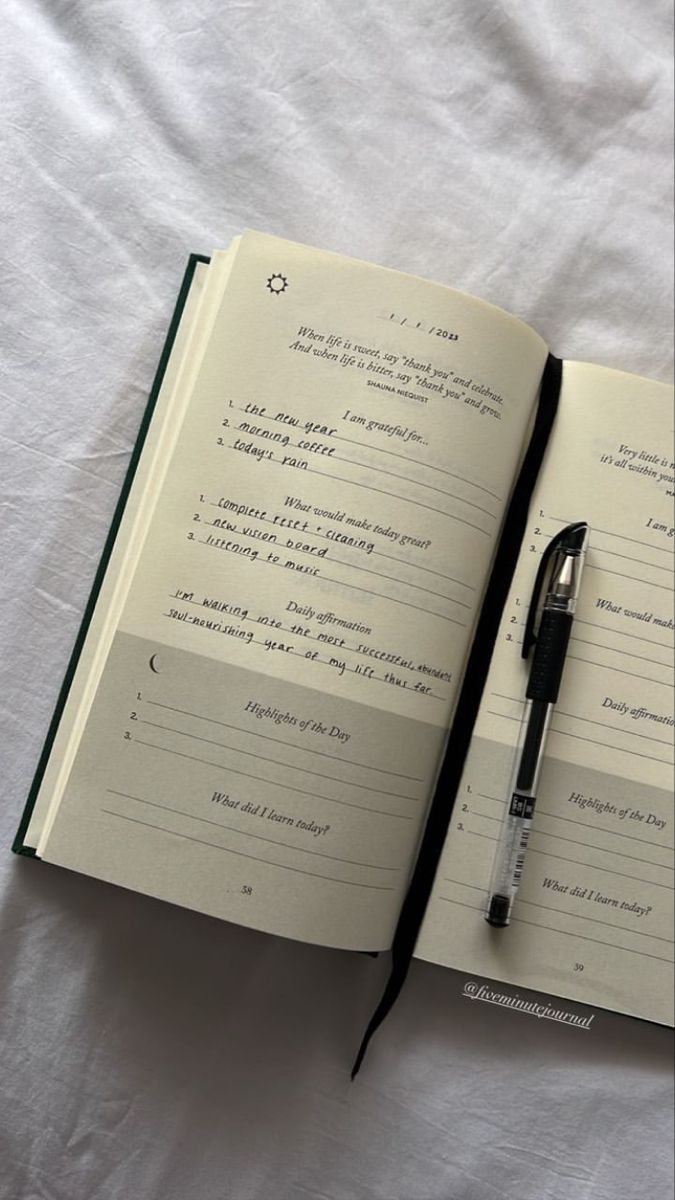 1 / 1 / 2023
When life is sweet, say "thank you" and celebrate.
And when life is bitter, say "thank you" and grow.
SHAUNA NIEQUIST
I am grateful for...
1. the new year
2. morning coffee
3. today's rain
What would make today great?
1. complete reset + cleaning
2. new vision board
3. listening to music
Daily affirmation
I'm walking into the most successful, abundant
soul-nourishing year of my life thus far
Highlights of the Day
1.
2.
3.
What did I learn today?
58
Very little is
it's all within
I am
1.
2.
3.
What would make
1.
2.
3.
Daily affirmatio
Highlights of the Day
1.
2.
3.
What did I learn today?
59
@fiveminutejournal